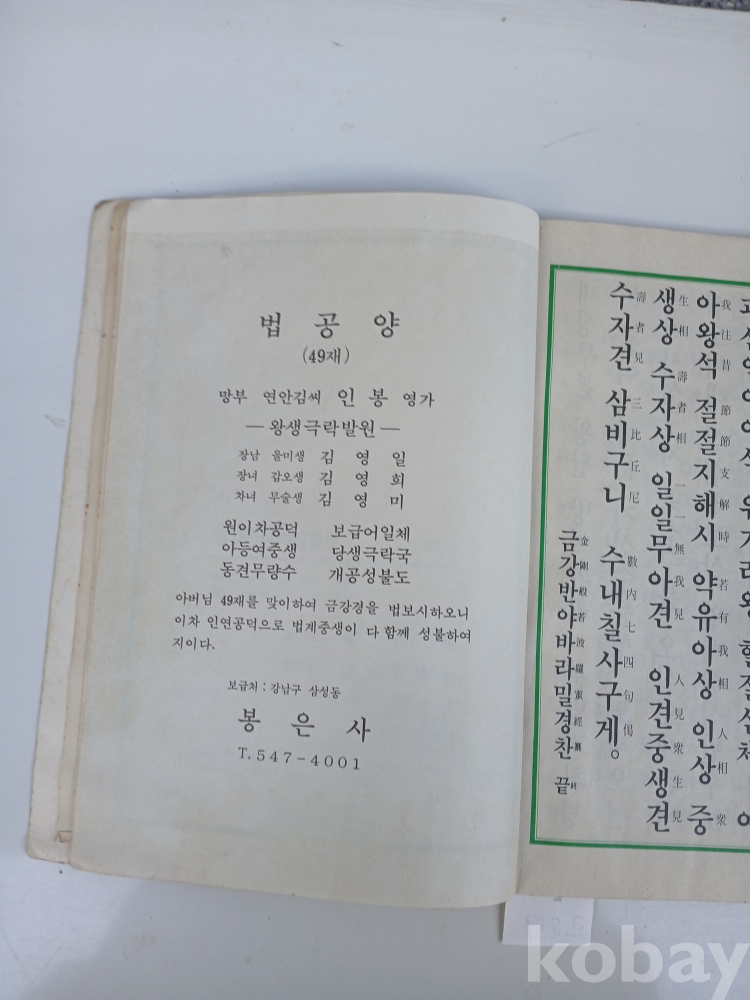 법 공 양
(49재)
망부 연안김씨 인 봉 영가
─ 왕생극락발원 ─
장남 을미생 김 영 일
장녀 갑오생 김 영 희
차녀 무술생 김 영 미
원이차공덕 보급어일체
아등여중생 당생극락국
동견무량수 개공성불도
아버님 49재를 맞이하여 금강경을 법보시하오니
이차 인연공덕으로 법계중생이 다 함께 성불하여
지이다.
보급처 : 강남구 삼성동
봉 은 사
T. 547-4001
아我왕往석昔 절節절節지支해解시時 약若유有아我상相 인人상相 중衆
생生상相 수壽자者상相 일一일一무無아我견見 인人견見중衆생生견見
수壽자者견見 삼三비比구丘니尼 수數내內칠七사四구句게偈。
금金강剛반般야若바波라羅밀蜜경經찬纂 끝終
kobay